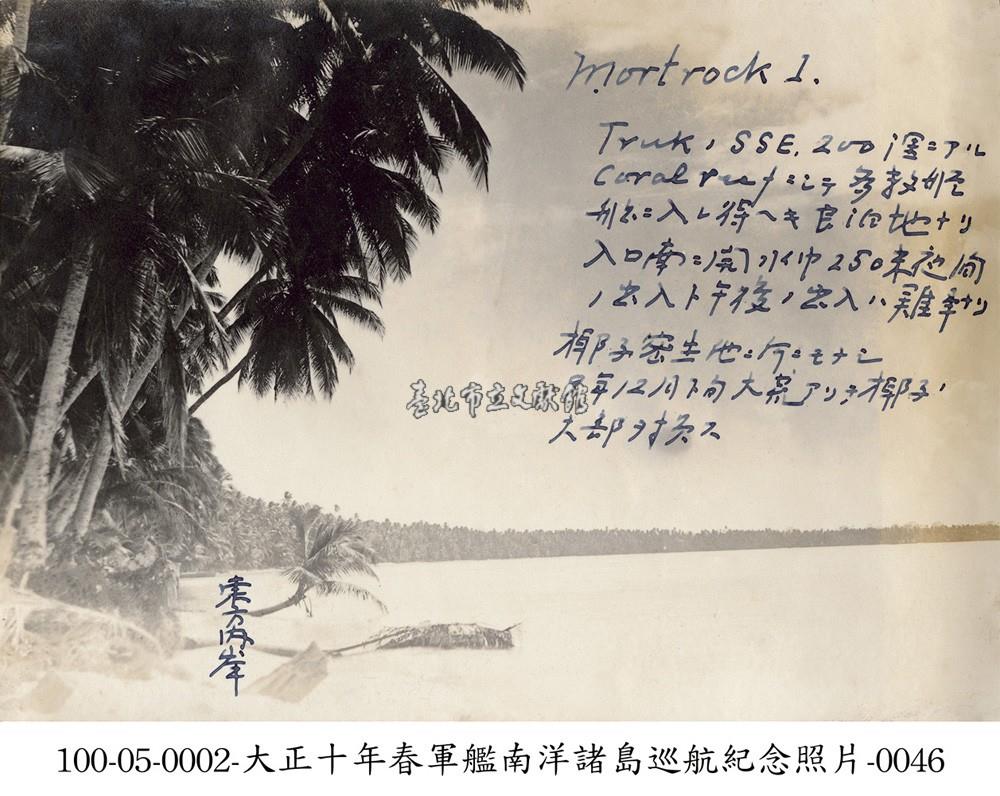 Mortrock I.
Truk, SSE. 200浬ニアル
Coral reefニシテ多数艦
船ニ入レ得ヘキ良泊地ナリ
入口南ニ開
ノ出入ト午後ノ出入ハ難事ナリ
椰子密生
12月下旬大荒アリテ椰子ノ
大部ヲ損ス
臺北市立文獻館
東方内
100-05-0002-大正十年春軍艦南洋諸島巡航紀念照片-0046